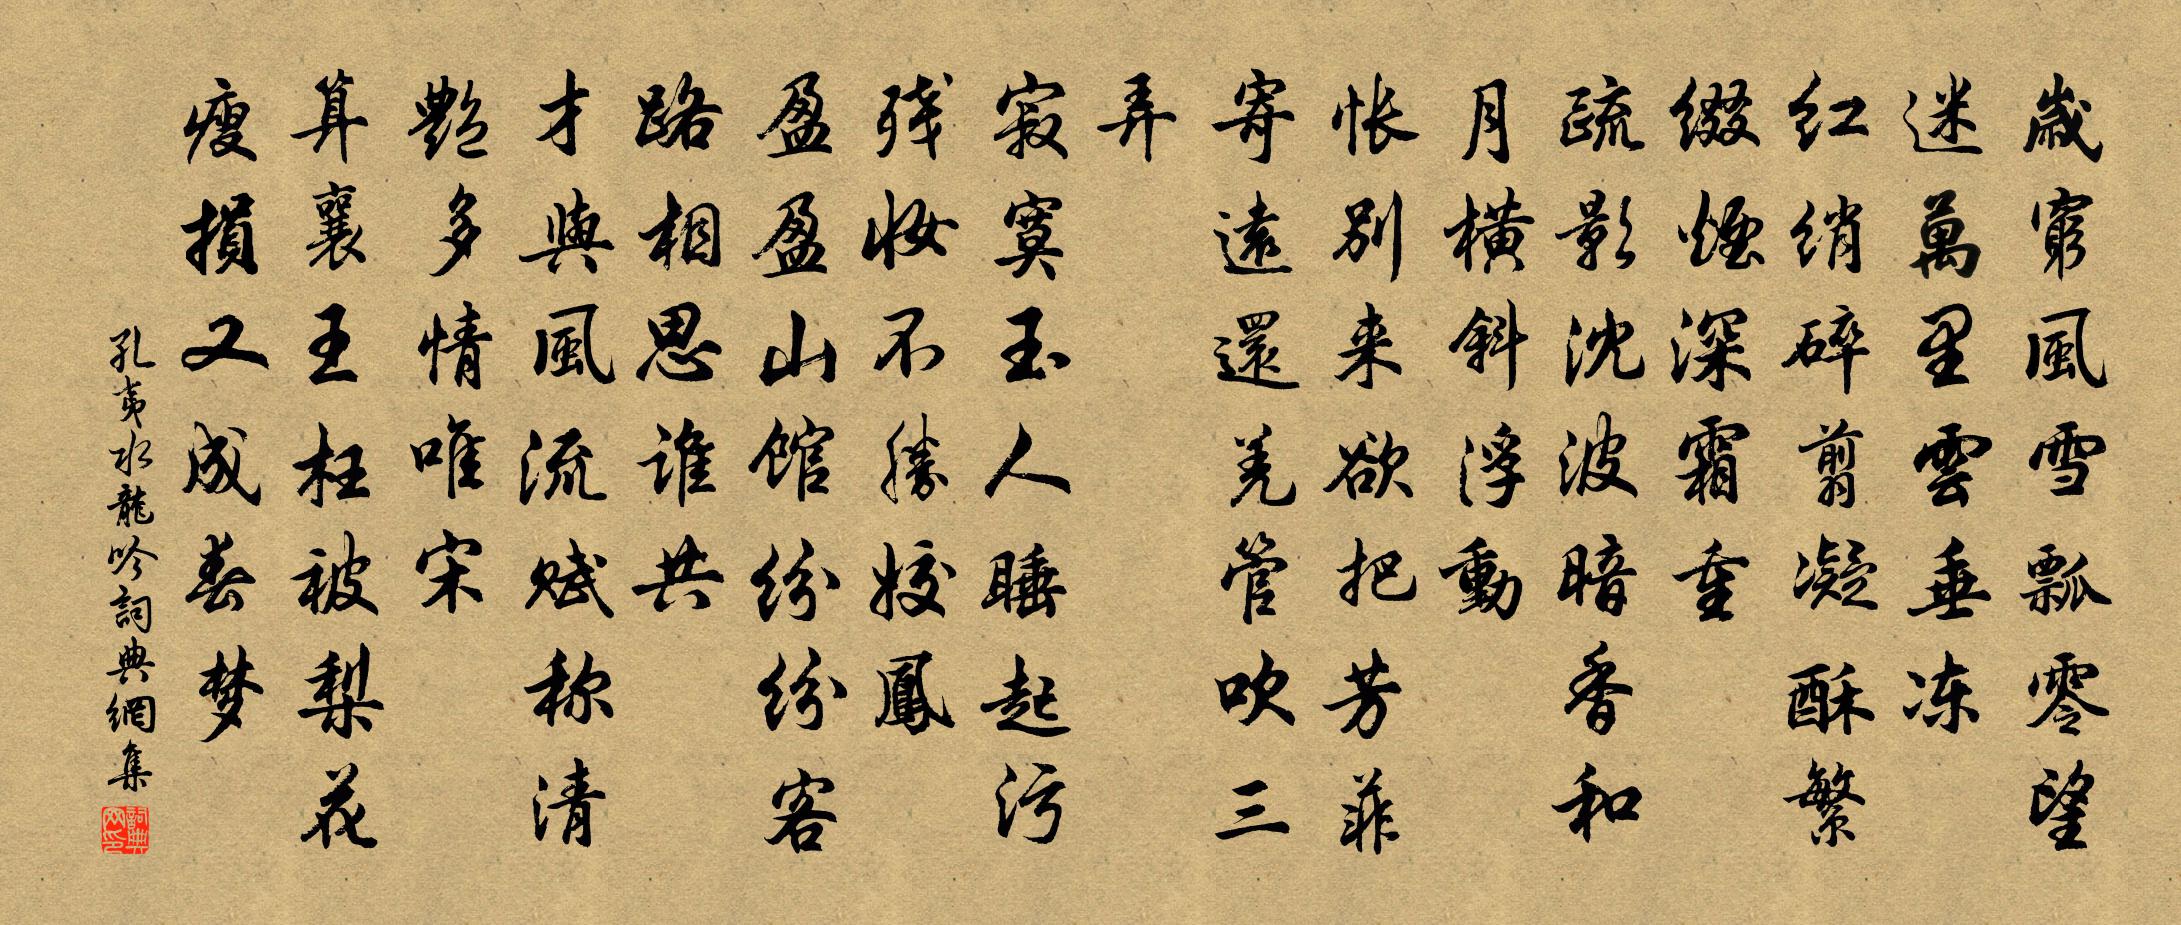 歲窮風雪飄零望
迷萬里雲垂冻
红绡碎剪凝酥繁
缀煙深霜重
疏影沈波暗香和
月橫斜浮動
怅别来欲把芳菲
寄遠還羌管吹三
弄
寂寞玉人睡起污
残妝不勝姣鳳
盈盈山馆纷纷客
路相思谁共
才與風流赋称清
艷多情唯宋
算襄王枉被梨花
瘦損又成春梦
孔夷水龍吟詞典網集
詞典网印